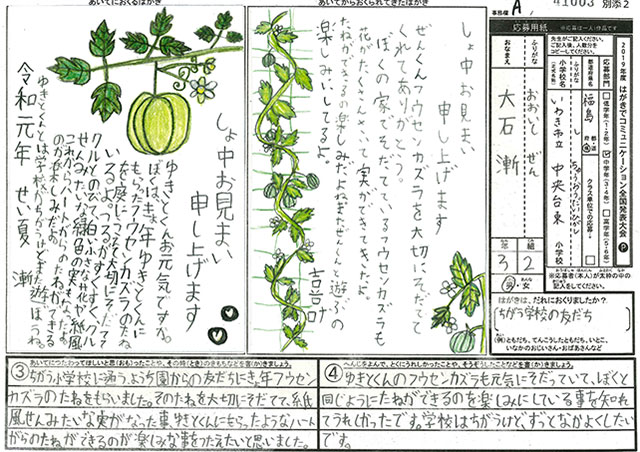 あいてにおくるはがき
しょ中お見まい
申し上げます
ゆきとくんお元気ですか。
ぼくは、きょ年ゆきとくんに
もらったフウセンカズラのたね
クルとのびて白い小さな花や紙風
せんみたいな緑色の実
令和元年 せい夏
漸
あいてからおくられてきたはがき
しょ中お見まい
申し上げます
ぜんくんフウセンカズラを大切にそだてて
くれてありがとう。
ぼくの家でそだてているフウセンカズラも
花がたくさんさいて実ができてきたよ。
たねができるのが楽しみだよねまたぜんくんと遊ぶの
楽しみにしてるよ。
事務欄 A 41003 別添2
応募用紙
※応募は一人1作品です
2019年度 はがきでコミュニケーション全国発表大会
応募部門
低学年(1・2年)
中学年(3・4年)
高学年(5・6年)
先生がご記入ください。
ご記入後、人数分を
コピーしてください。
都道府県名
福島
クラス単位での応募
小学校名
(正式名称)
ふりがな
いわき市立 中央台東 小学校
ふりがな おおいし ぜん
おなまえ 大石 漸
3年 2組
男・女
※応募者(本人)が太枠の中の
記入をしてください。
はがきは、だれにおくりましたか?
ちがう学校の友だち
(例)ともだち、てんこうしたともだち、いとこ、
いなかのおじいさん・おばあさんなど
③ あいてにつたわってほしいと思(おも)ったことや、その時(とき)のきもちなどを書(か)きましょう。
ちがう小学校に通う、ようち園からの友だちにきょ年フウセン
カズラのたねをもらいました。そのたねを大切にそだてて、紙
風せんみたいな実がなった事、ゆきとくんにもらったようなハート
がらのたねができるのが楽しみな事をつたえたいと思いました。
④ へんじをよんで、とくにうれしかったことや、そうぞうしたことなどを書(か)きましょう。
ゆきとくんのフウセンカズラも元気にそだっていて、ぼくと
同じようにたねができるのを楽しみにしている事を知れ
てうれしかったです。学校はちがうけど、ずっとなかよくしたい
です。